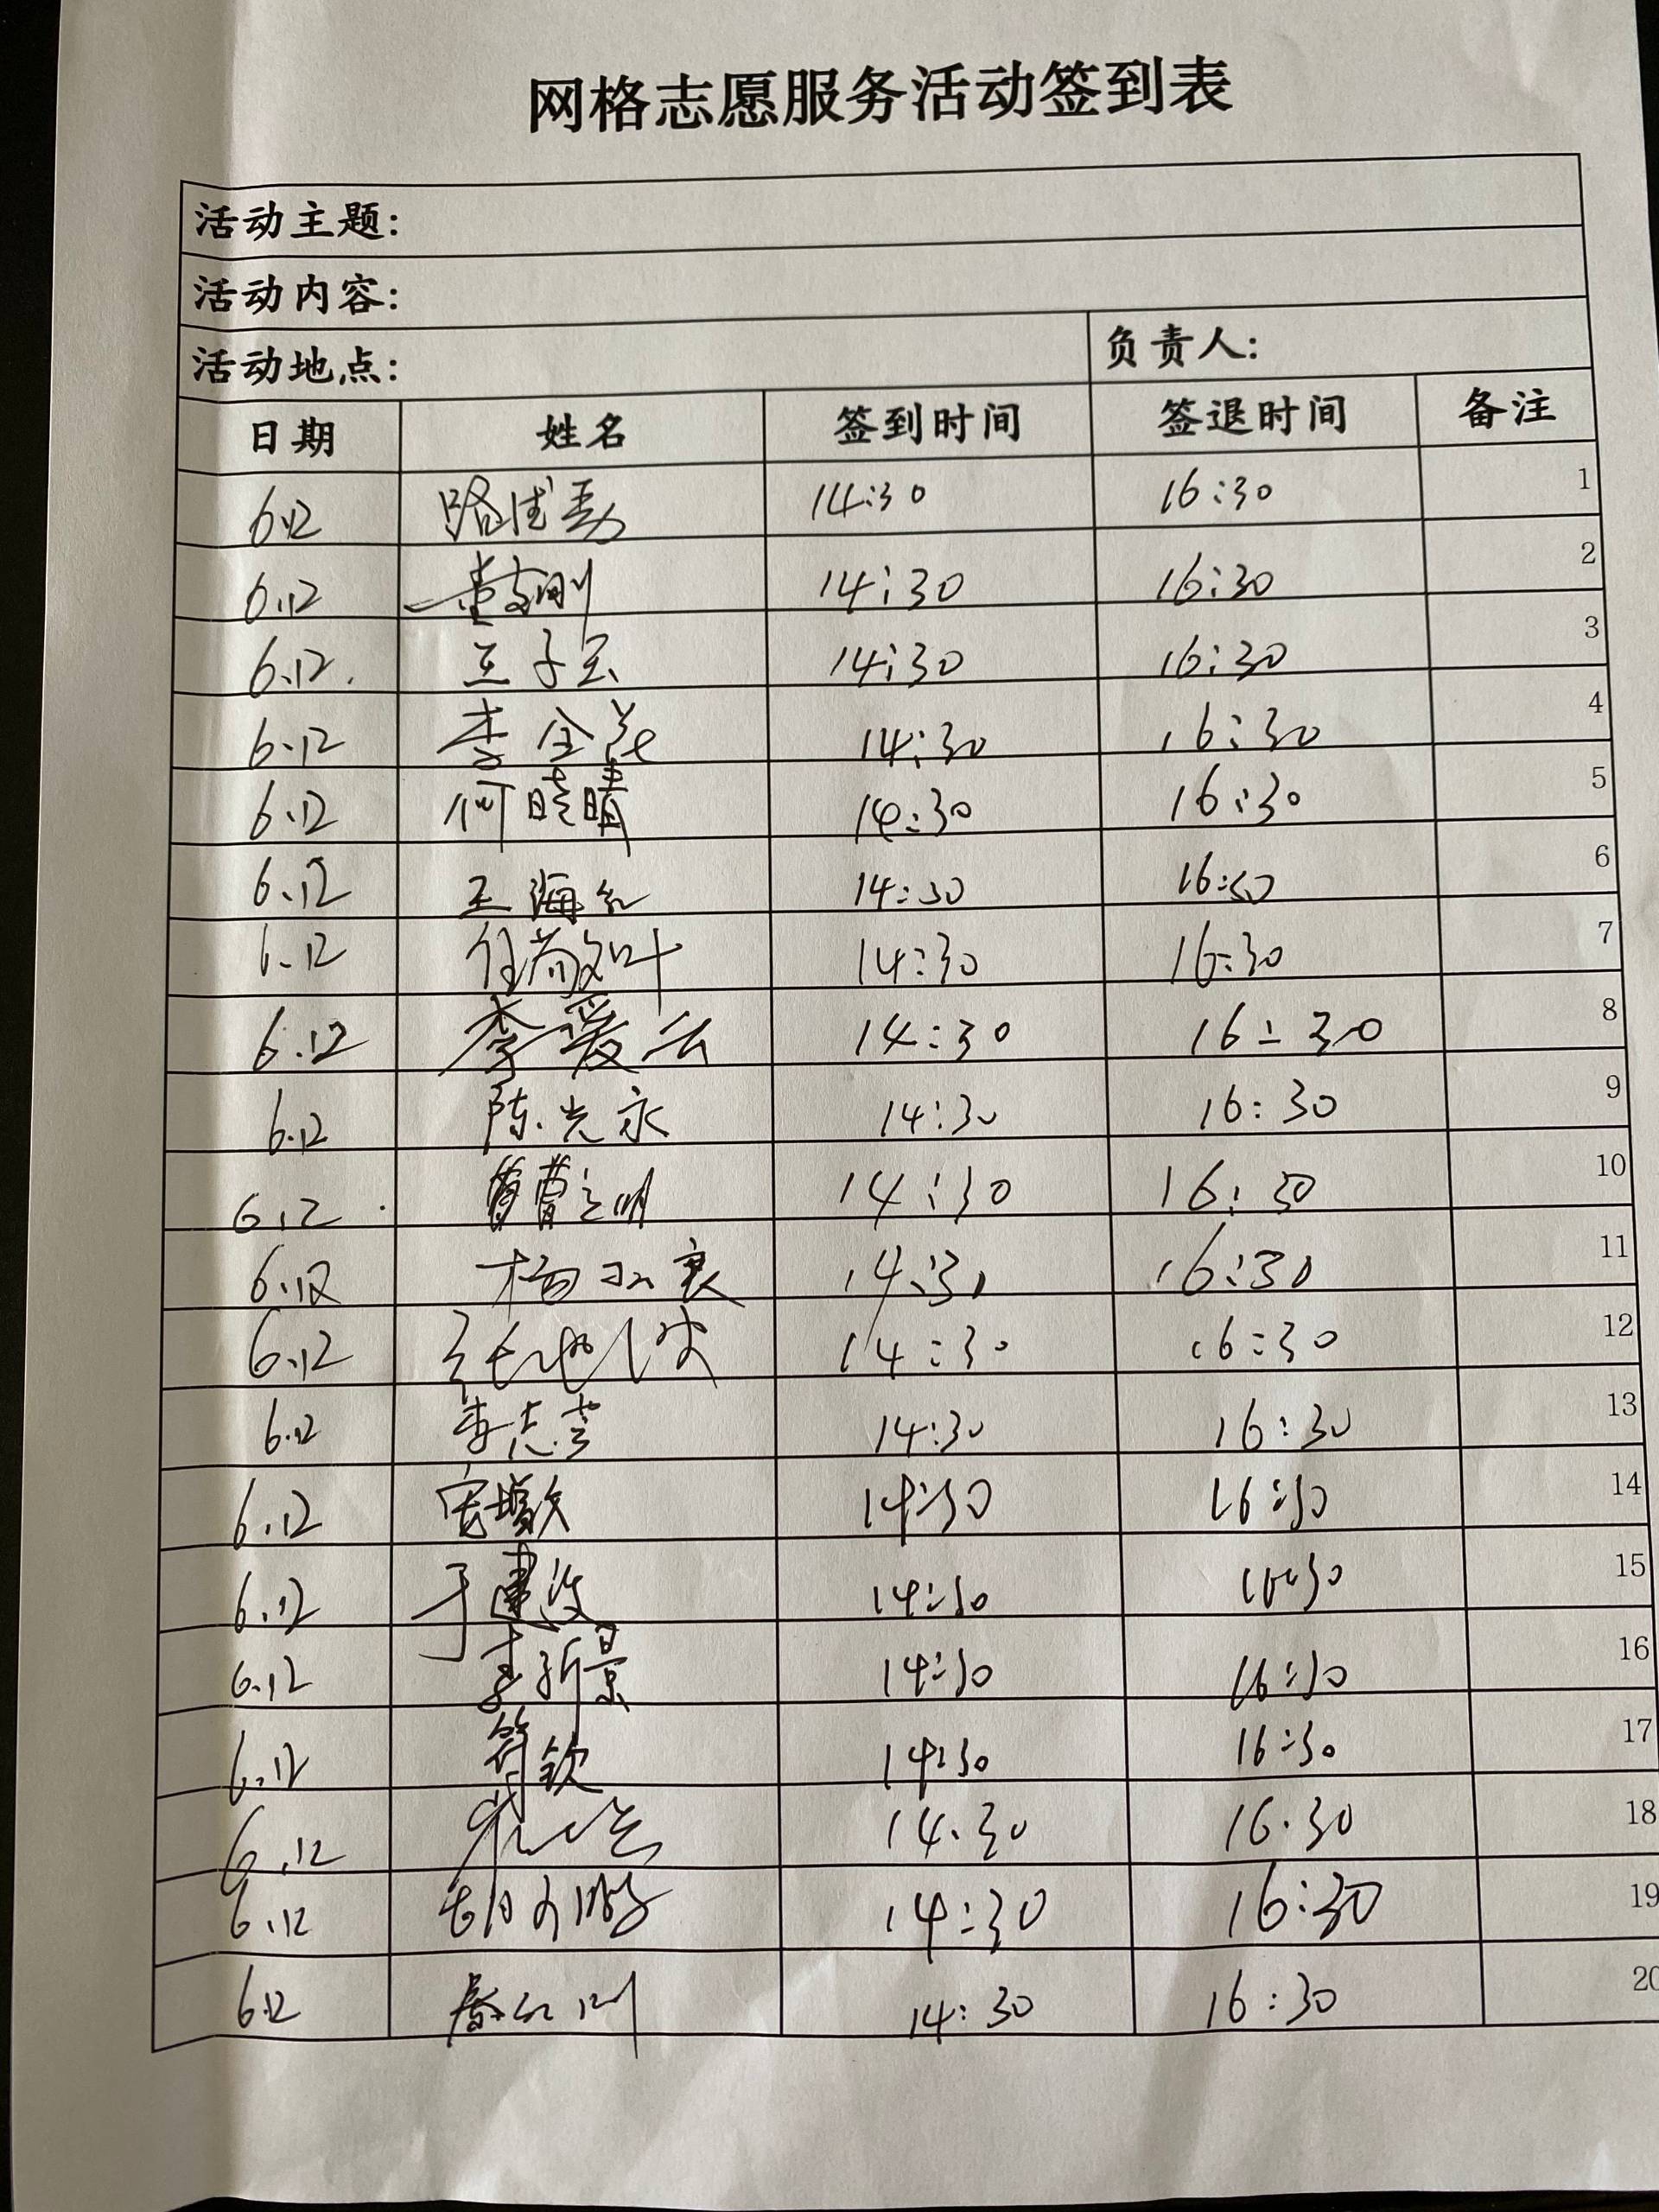 网格志愿服务活动签到表
活动主题:
活动内容:
活动地点: 负责人:
日期 姓名 签到时间 签退时间 备注
6.12 路 14:30 16:30 1
6.12 刚 14:30 16:30 2
6.12. 王子玉 14:30 16:30 3
6.12 李全花 14:30 16:30 4
6.12 何晓晴 14:30 16:30 5
6.12 王海红 14:30 16:30 6
6.12 任 14:30 16:30 7
6.12 李爱云 14:30 16:30 8
6.12 陈光永 14:30 16:30 9
6.12 曹立明 14:30 16:30 10
6.12 杨 14:30 16:30 11
6.12 张 14:30 16:30 12
6.12 李志芳 14:30 16:30 13
6.12 增 14:30 16:30 14
6.12 于建设 14:30 16:30 15
6.12 李新景 14:30 16:30 16
6.12 符钦 14:30 16:30 17
6.12 14.30 16.30 18
6.12 胡文 14:30 16:30 19
6.12 14:30 16:30 20